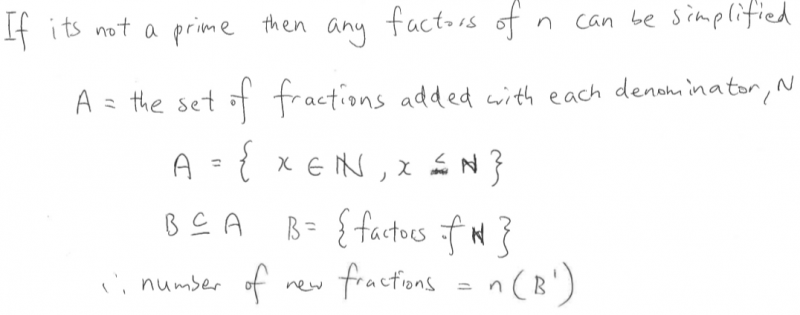 If its not a prime then any factors of n can be simplified
A = the set of fractions added with each denominator, N
A = { x ∈ ℕ, x ≤ N }
B ⊆ A B = { factors of N }
∴ number of new fractions = n(B')